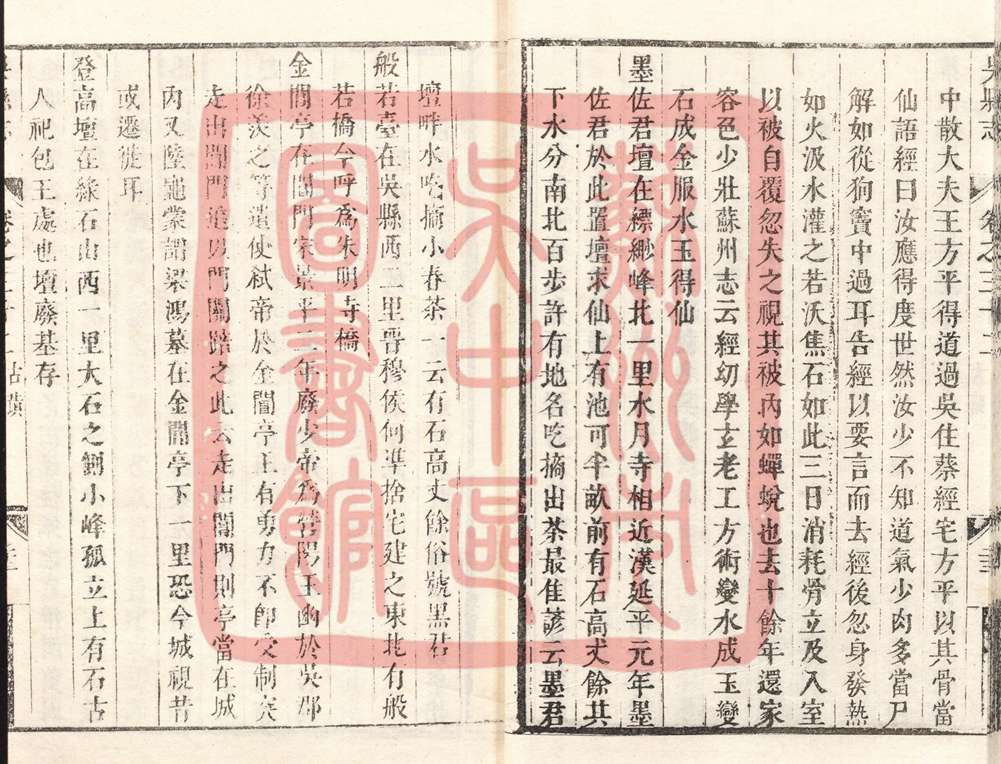 吳縣志
中散大夫王方平得道過吳住蔡經宅方平以其骨當
仙語經曰汝應得度世然汝少不知道氣少肉多當尸
解如從狗竇中過耳告經以要言而去經後忽身發熱
如火汲水灌之若沃焦石如此三日消耗骨立及入室
以被自覆忽失之視其被內如蟬蛻也去十餘年還家
容色少壯蘇州志云經幼學立老工方術變水成玉變
石成金服水玉得仙
墨佐君壇在縹緲峰北一里水月寺相近漢延平元年墨
佐君於此置壇求仙上有池可半畝前有石高丈餘其
下水分南北百步許有地名吃摘出茶最隹諺云墨君
壇畔水吃摘小春茶一云有石高丈餘俗號黑君
般若臺在吳縣西二里晉穆侯何準捨宅建之東北有般
若橋今呼爲朱明寺橋
金閶亭在閶門宋景平二年廢少帝爲營陽王幽於吳郡
徐羨之等遣使弑帝於金閶亭王有勇力不卽受制突
走出閶門追以門關踣之此云走出閶門則亭當在城
內又陸龜蒙謂梁鴻墓在金閶亭下一里恐今城視昔
或遷徙耳
登高壇在綠石山西一里大石之側小峰孤立上有石古
人祀包王處也壇廢基存
古蹟
蘇州吳中區圖書館